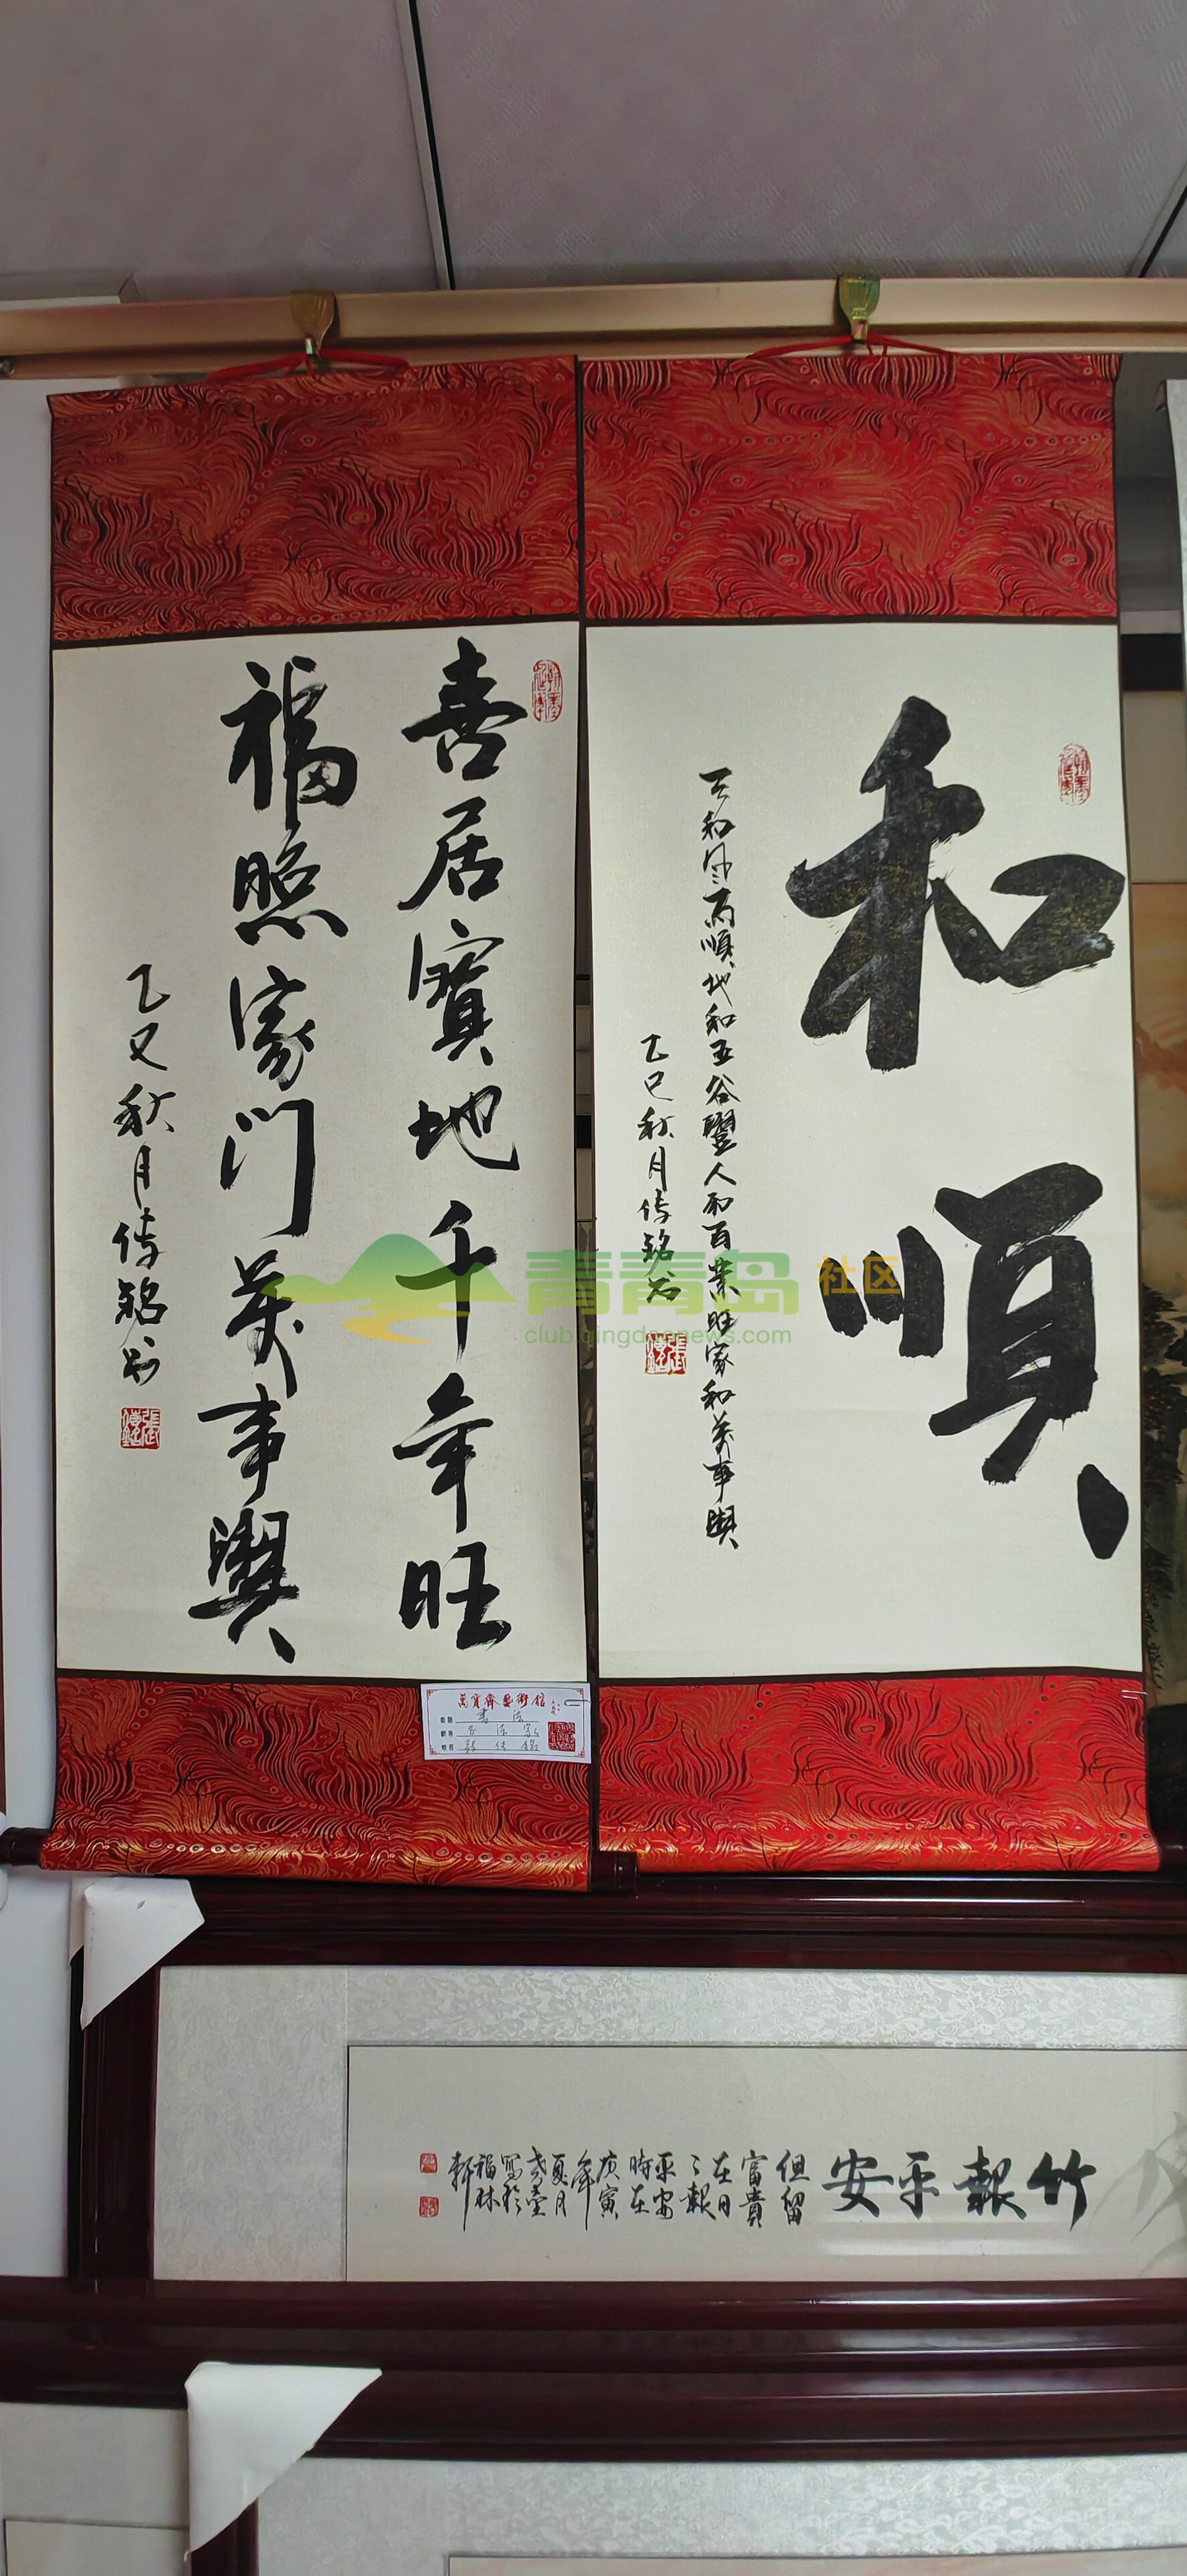 和順
天和風雨順地和五谷豐人和百業旺家和萬事興
乙巳秋月传銘书
張傳銘
喜居寶地千年旺
福照家門萬事興
乙巳秋月传銘书
張傳銘
萬寶齋藝術館
書法
竹報平安
但留
富貴
在日
時在
庚寅
年
夏月
寫於
福林
軒
青青岛 社区
club.qingdaonews.com